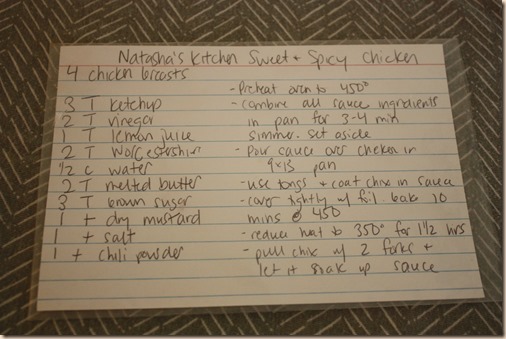 Natasha's Kitchen Sweet + Spicy Chicken
4 chicken breasts
3 T ketchup
2 T vinegar
1 T lemon juice
2 T Worcestershire
1/2 c water
2 T melted butter
3 T brown sugar
1 t dry mustard
1 t salt
1 t chili powder
- Preheat oven to 450°
- combine all sauce ingredients
in pan for 3-4 min
simmer. set aside
- Pour sauce over chicken in
9x13 pan
- use tongs + coat chix in sauce
- cover tightly w/ foil. bake 10
mins @ 450
- reduce heat to 350° for 1 1/2 hrs
- pull chix w/ 2 forks +
let it soak up sauce